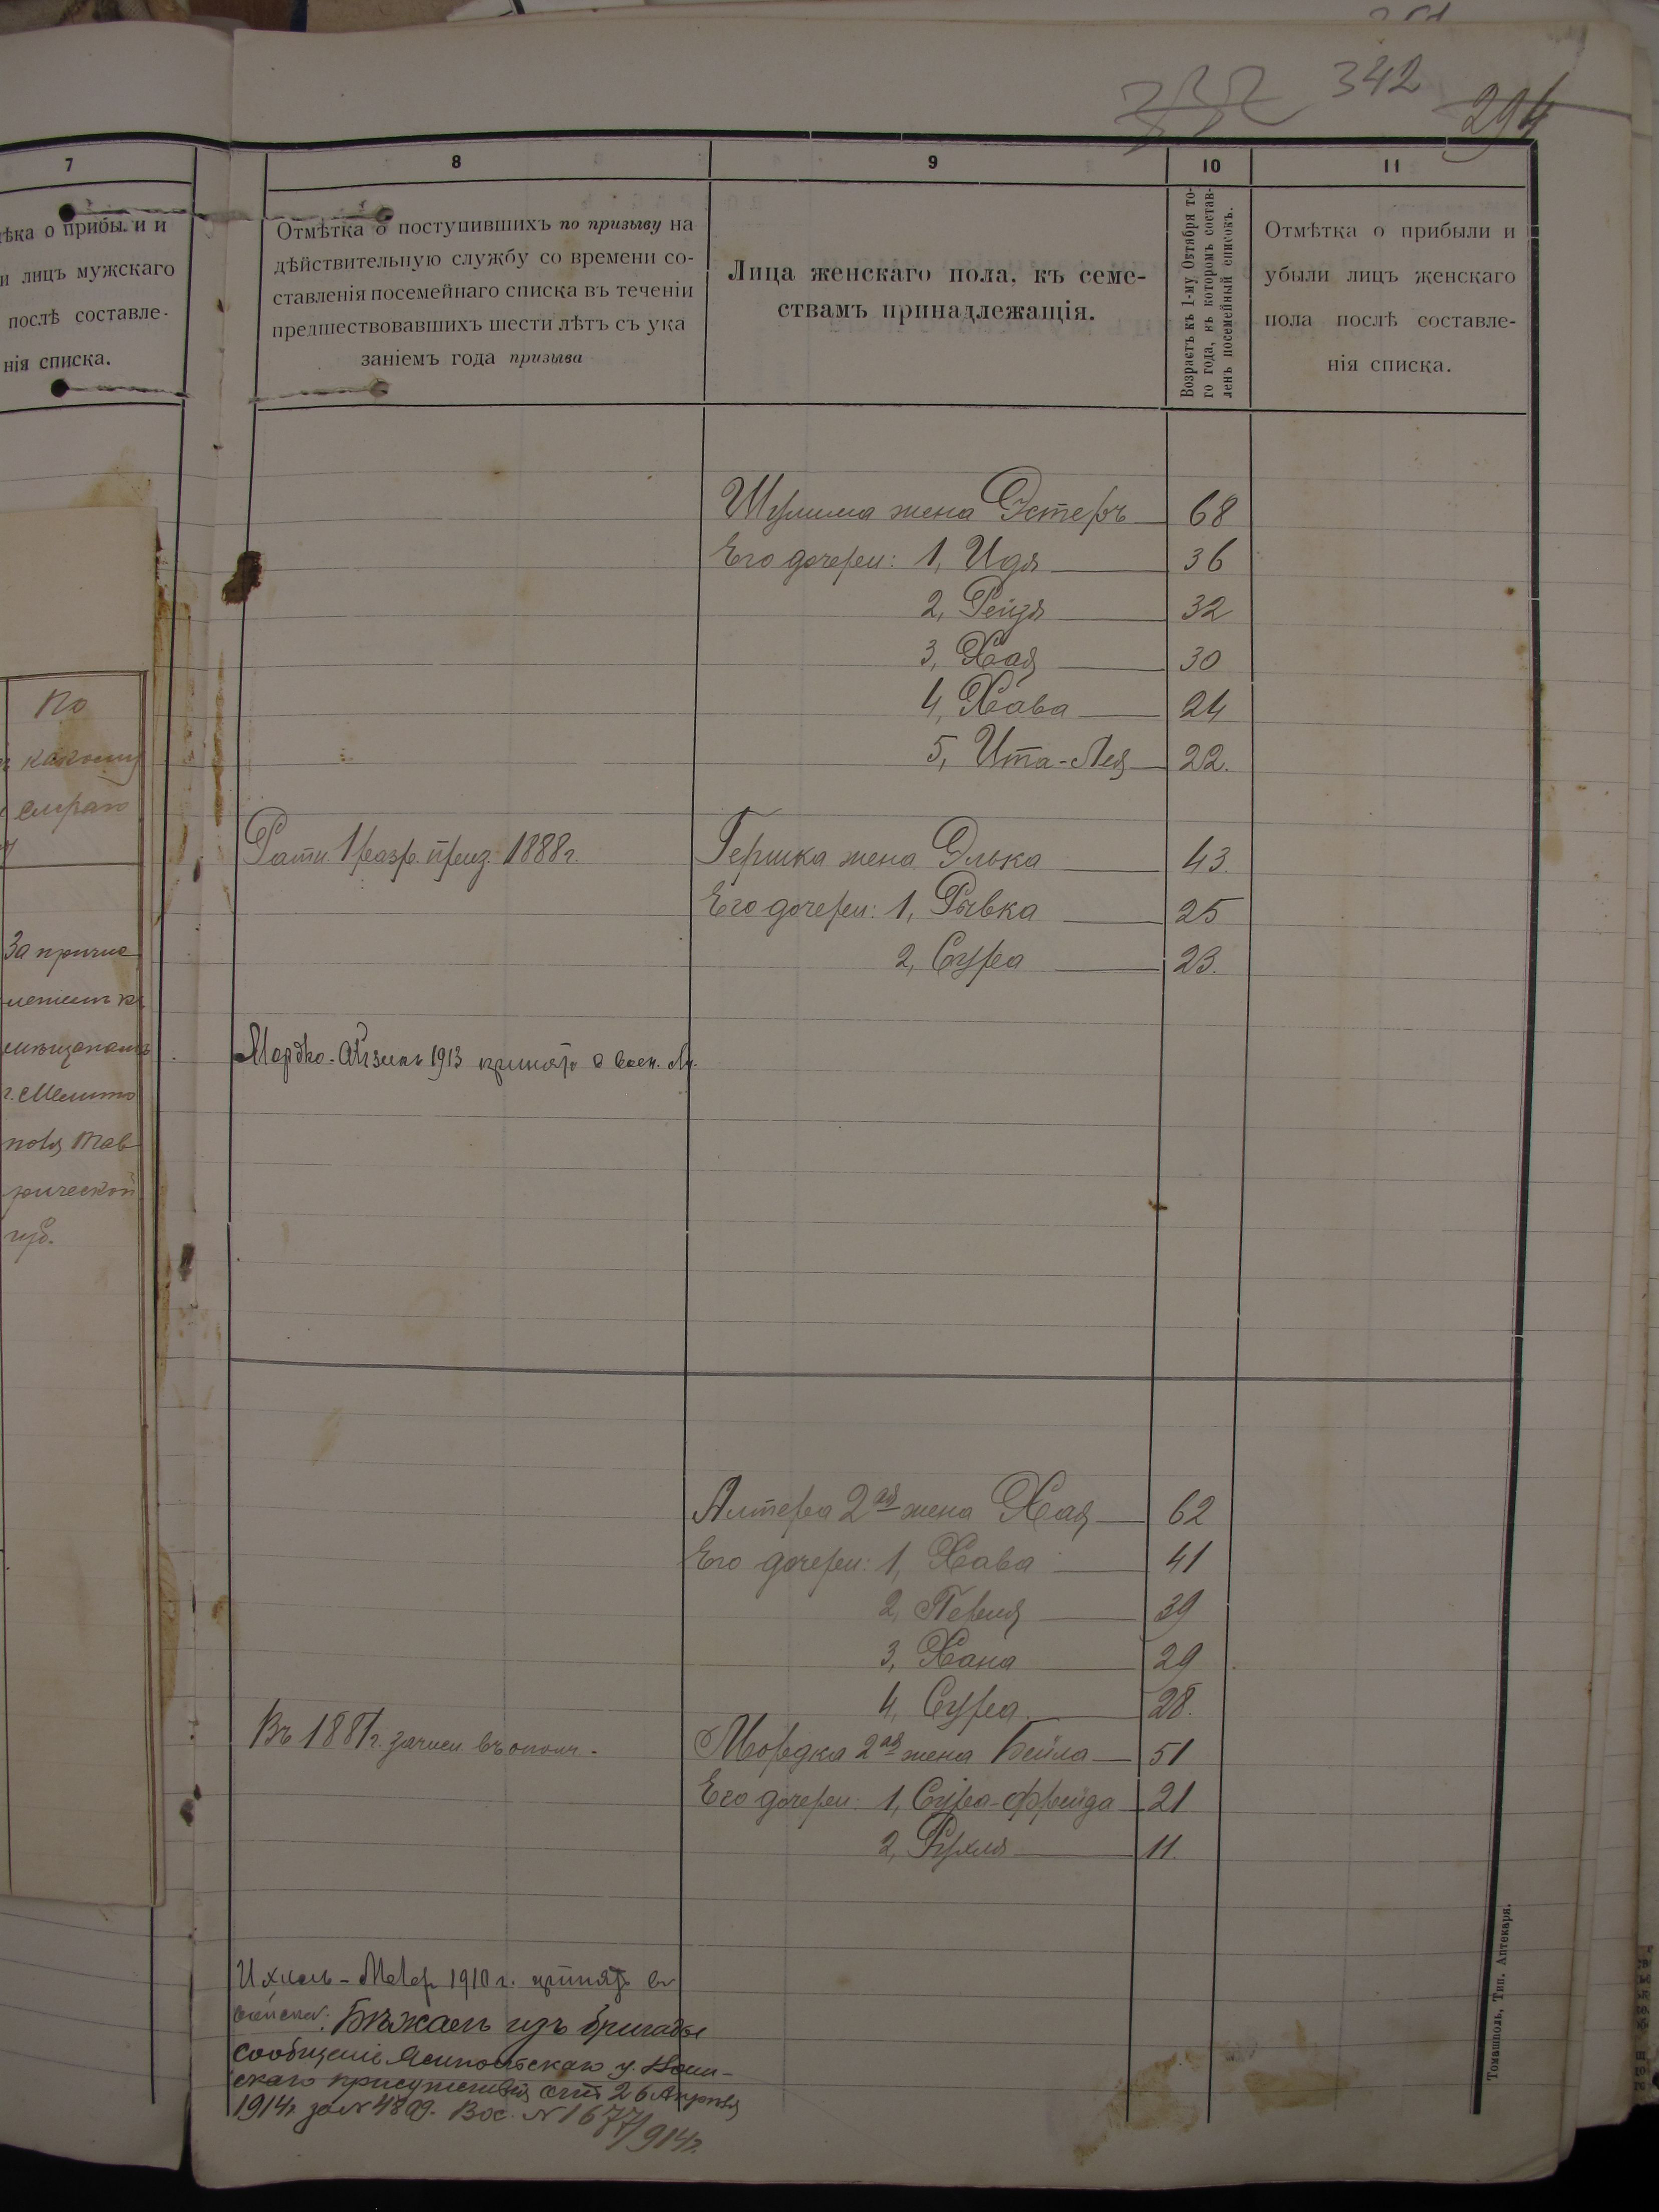 342
294
7
8
9
10
11
ѣка о прибыли и
и лицъ мужскаго
послѣ составле-
нія списка.
Отмѣтка о поступившихъ по призыву на
дѣйствительную службу со времени со-
ставленія посемейнаго списка въ теченіи
предшествовавшихъ шести лѣтъ съ ука
заніемъ года призыва
Лица женскаго пола, къ семе-
ствамъ принадлежащія.
Возрастъ къ 1-му Октября то-
го года, въ которомъ состав-
ленъ посемейный списокъ.
Отмѣтка о прибыли и
убыли лицъ женскаго
пола послѣ составле-
нія списка.
Шулима жена Эстеръ 68
Его дочери: 1, Идя 36
2, Рейзя 32
3, Хая 30
4, Хава 24
5, Ита-Лея 22.
По
какому
Ратн. 1 разр. приз. 1888 г.
Гершка жена Элька 43.
Его дочери: 1, Рывка 25
2, Сура 23.
За причис
лениемъ къ
мѣщанамъ
г. Мелито
поля Тав
рической
губ.
Мордко-Айзикъ 1913 принятъ в воен. сл.
Алтера 2ая жена Хая 62
Его дочери: 1, Хава 41
2, Перля 39
3, Хана 29
4, Сура 28.
Въ 1881 г. зачисл въ ополч.
Мордка 2ая жена Бейла 51
Его дочери: 1, Сура-Фрейда 21
2, Рухля 11.
Ихиель-Меер 1910 г. принятъ въ
войска. Бѣжалъ изъ бригады
сообщеніе у. Воин-
скаго присутствія отъ 26 Апрѣля
1914 г. за № 4809. Вх. № 1677/914 г.
Томашполь, Тип. Аптекаря.